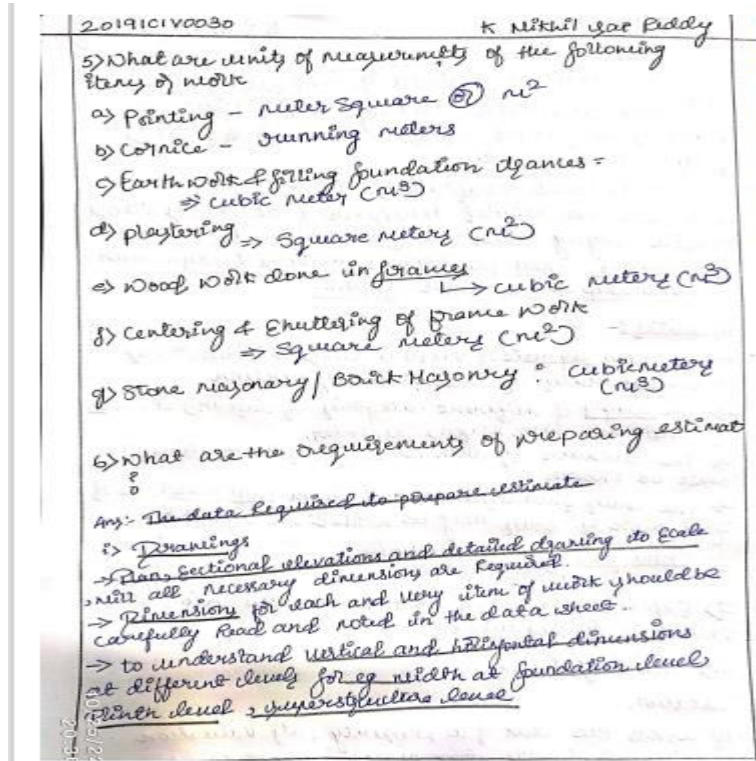 20191CIV0030 K Nikhil Sai Reddy
5) What are units of measurements of the following
items of work
a) Pointing - meter square or m²
b) Cornice - running meters
c) Earthwork & filling foundation =
⇒ cubic meter (m³)
d) plastering ⇒ Square meters (m²)
e) Wood work done in frames
↳ cubic meters (m³)
f) Centering & Shuttering of frame work
⇒ Square meters (m²)
g) Stone masonary / Brick Masonry : cubic meters
(m³)
6) What are the requirements of preparing estimat
?
Ans:- The data Required to prepare estimate
i) Drawings
→ Plan, Sectional elevations and detailed drawing to Scale
with all necessary dimensions are Required.
→ Dimensions for each and very item of work should be
carefully Read and noted in the data sheet.
→ to understand vertical and horizontal dimensions
at different levels for eg width at foundation level
Plinth level, superstructure level